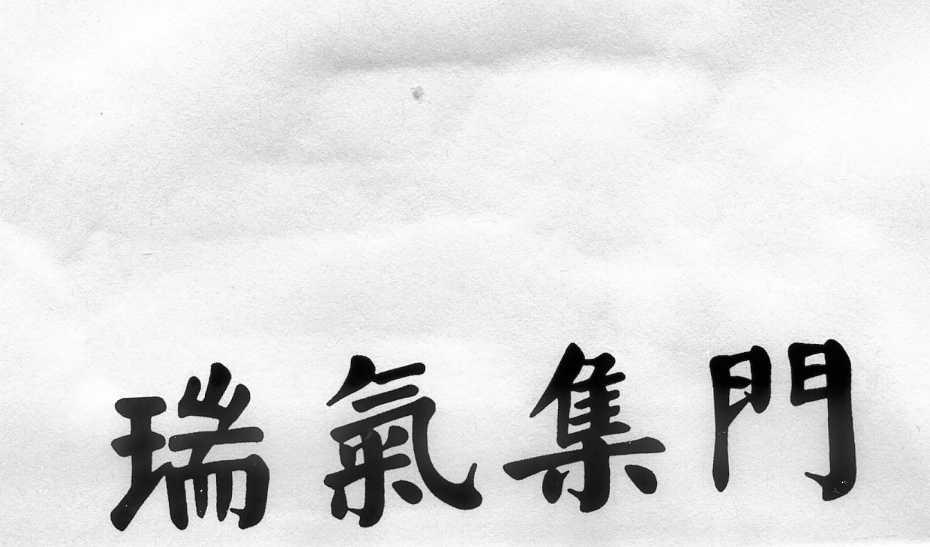 瑞氣集門